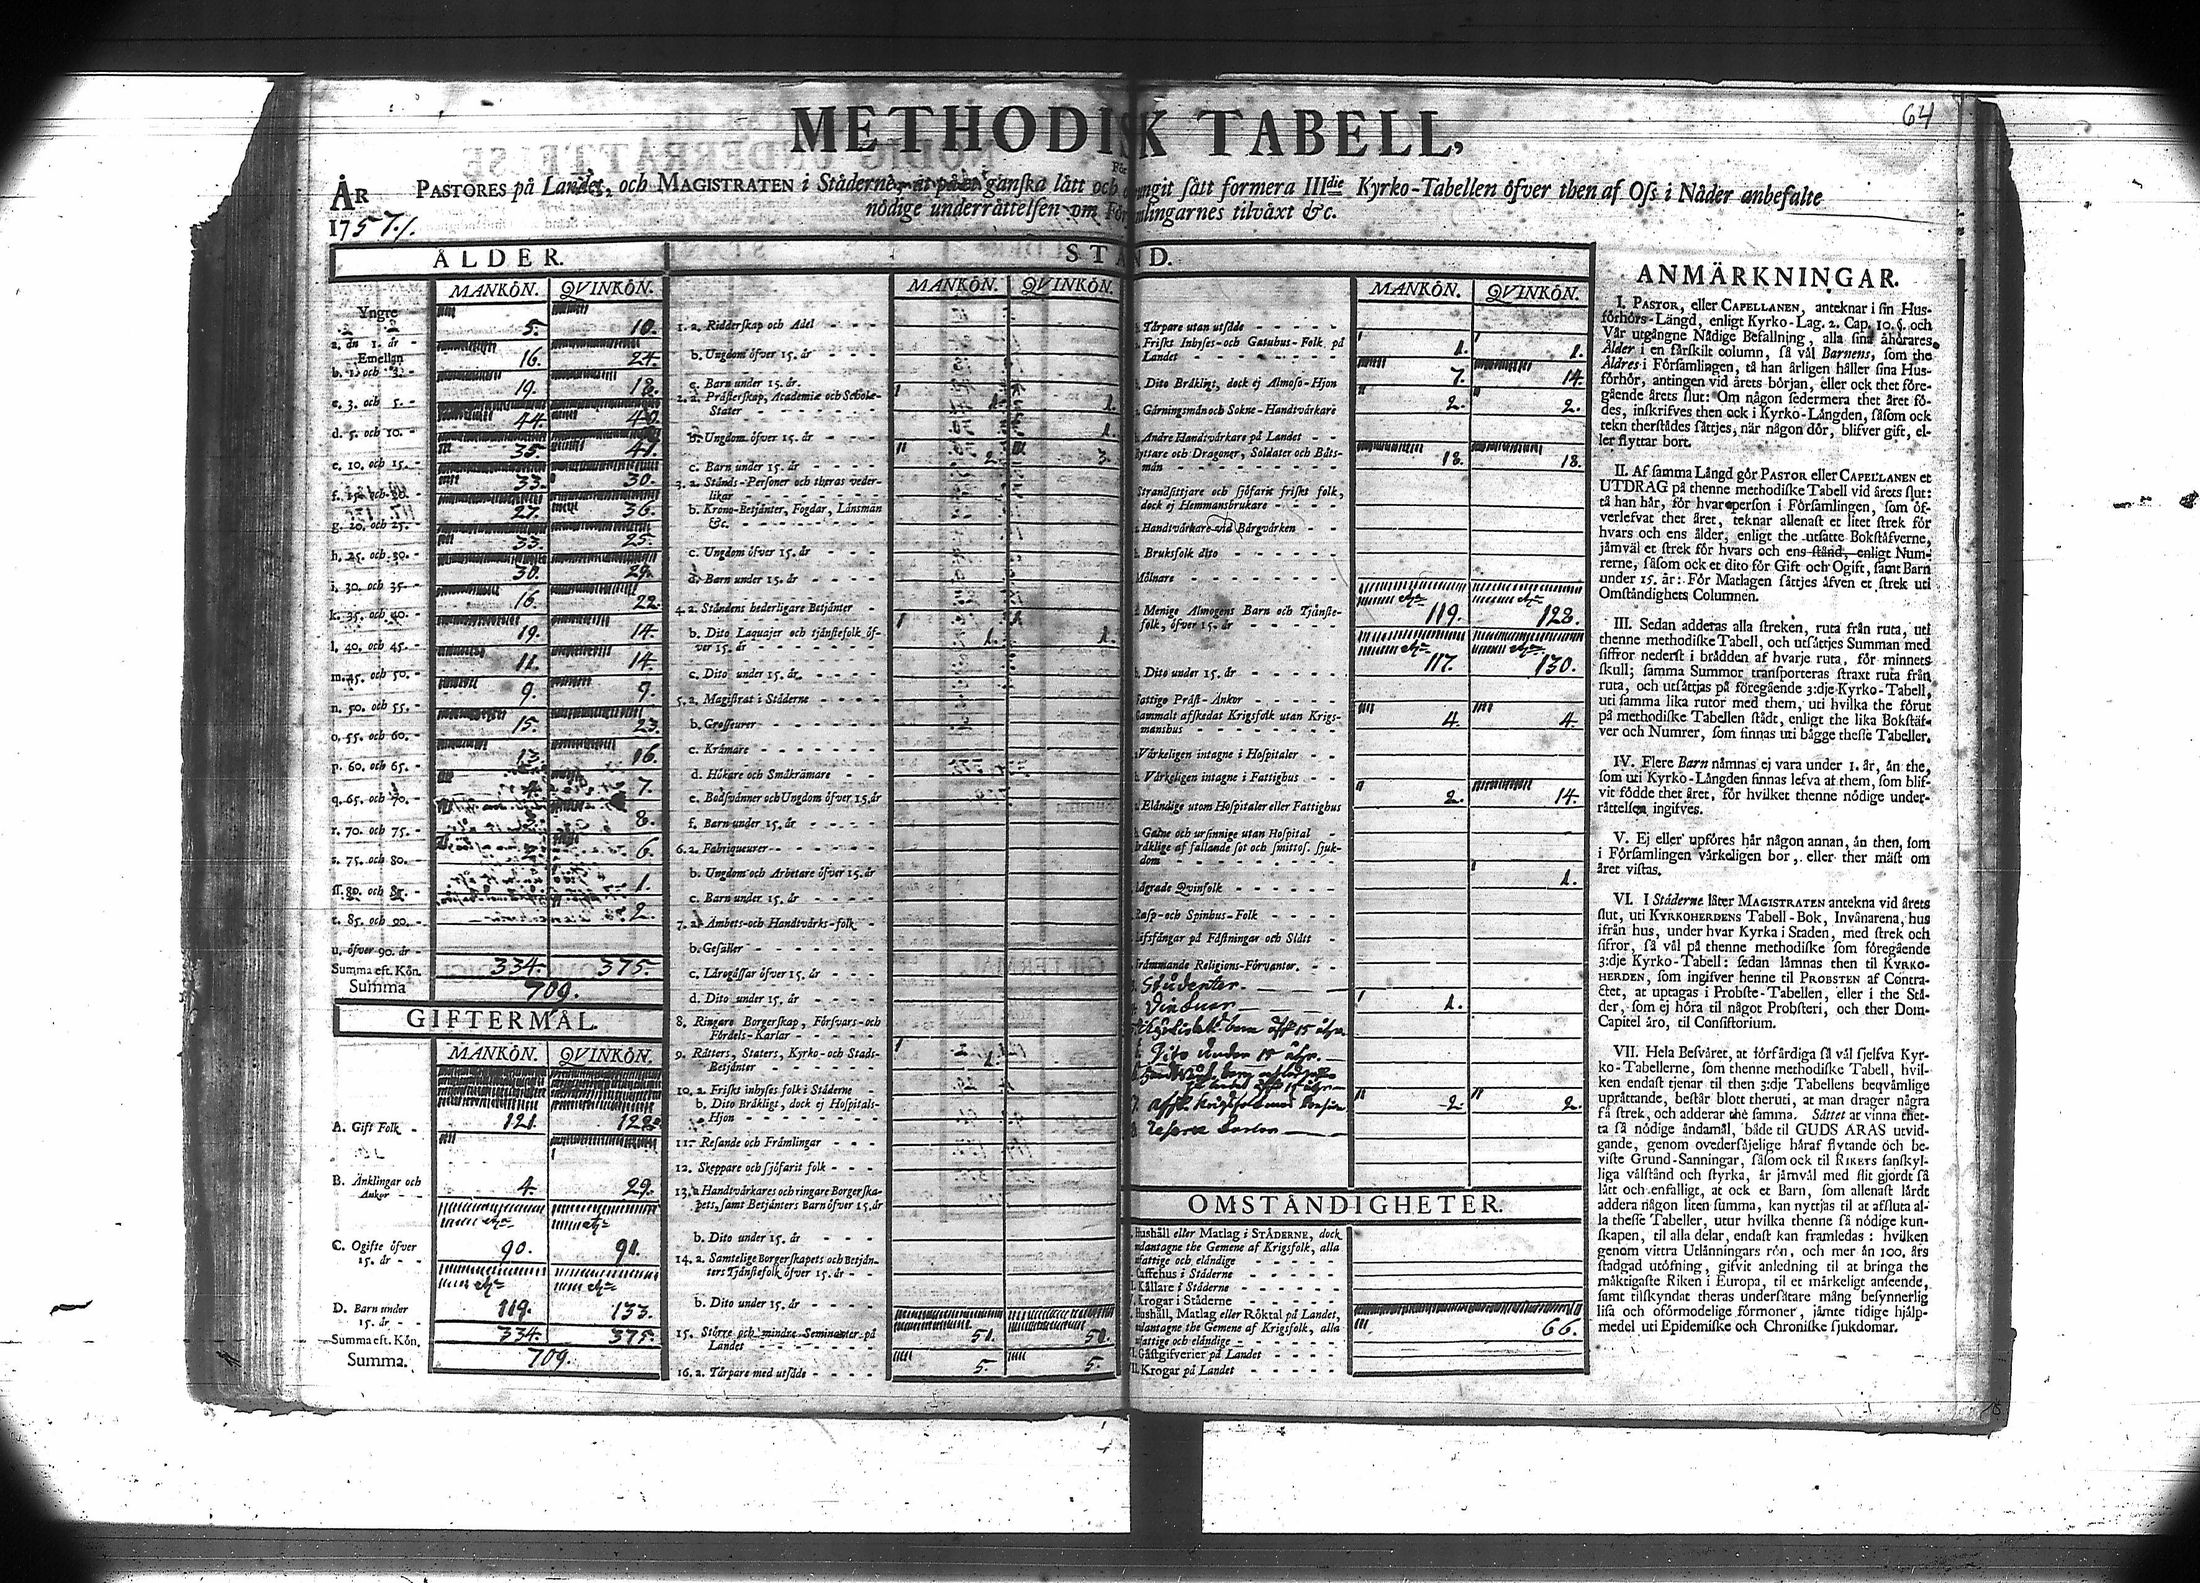 64
METHODISK TABELL,
För
ÅR PASTORES på Landet, och MAGISTRATEN i Städerne, at på et ganska lätt och tvungit sätt formera IIIdie Kyrko-Tabellen öfver then af Oss i Nåder anbefalte
1757. nödige underrättelsen om Församlingarnes tilväxt &c.
ÅLDER.
MANKÖN. QVINKÖN.
Yngre
a. än 1. år - 5. 10.
Emellan
b. 1. och 3. - 16. 24.
c. 3. och 5. - 19. 18.
d. 5. och 10. - 44. 40.
e. 10. och 15. - 35. 41.
f. 15. och 20. - 33. 30.
g. 20. och 25. - 27. 36.
h. 25. och 30. - 33. 25.
i. 30. och 35. - 30. 29.
k. 35. och 40. - 16. 22.
l. 40. och 45. - 19. 14.
m. 45. och 50. - 11. 14.
n. 50. och 55. - 9. 9.
o. 55. och 60. - 15. 23.
p. 60. och 65. - 13. 16.
q. 65. och 70. - 7.
r. 70. och 75. - 8.
s. 75. och 80. - 6.
ff. 80. och 85. - 1.
t. 85. och 90. - 2.
u. öfver 90. år -
Summa eft. Kön. 334. 375.
Summa 709.
GIFTERMÅL.
MANKÖN. QVINKÖN.
A. Gift Folk - 121. 122.
B. Änklingar och
Änkor - - 4. 29.
C. Ogifte öfver 90. 91.
15. år - -
D. Barn under 119. 133.
15. år - -
Summa eft. Kön. 334. 375.
Summa. 709.
STÅND.
MANKÖN. QVINKÖN.
1. a. Ridderskap och Adel - - - -
b. Ungdom öfver 15. år - - -
c. Barn under 15. år.
2. a. Prästerskap, Academie och Schole-
Stater - - - - - 1. 1.
b. Ungdom öfver 15. år - - - 1.
c. Barn under 15. år - - - - 2. 3.
3. a. Stånds-Personer och theras veder-
likar - - - - -
b. Krono-Betjänter, Fogdar, Länsmän
&c. - - - - -
c. Ungdom öfver 15. år - - - -
d. Barn under 15. år - - - -
4. a. Ståndens hederligare Betjänter -
b. Dito Laquajer och tjänstefolk öf- 1. 1.
ver 15. år - - - - -
c. Dito under 15. år - - - -
5. a. Magistrat i Städerne - - - -
b. Grosseurer - - - - -
c. Krämare - - - - -
d. Hökare och Småkrämare - -
e. Bodsvänner och Ungdom öfver 15. år
f. Barn under 15. år - - - -
6. a. Fabriqueurer - - - - -
b. Ungdom och Arbetare öfver 15. år
c. Barn under 15. år - - - -
7. a. Ämbets- och Handtvärks-folk -
b. Gesäller - - - - -
c. Lärogåssar öfver 15. år - - -
d. Dito under 15. år - - - -
8. Ringare Borgerskap, Försvars- och
Fördels-Karlar - - - -
9. Rätters, Staters, Kyrko- och Stads-
Betjänter - - - - - 1.
10. a. Friskt inhyses folk i Städerne -
b. Dito Bräkligt, dock ej Hospitals-
Hjon - - - - -
11. Resande och Främlingar - - -
12. Skeppare och sjöfarit folk - - -
13. a Handtvärkares och ringare Borgerska-
pets, samt Betjänters Barn öfver 15. år
b. Dito under 15. år - - - -
14. a. Samtelige Borgerskapets och Betjän-
ters Tjänstefolk öfver 15. år - -
b. Dito under 15. år - - - -
15. Större och mindre Hemmaner på 51. 50.
Landet - - - - -
16. a. Tårpare med utsäde - - - - 5. 5.
MANKÖN. QVINKÖN.
Tårpare utan utsäde - - - - -
Friskt Inhyses- och Gatuhus-Folk på
Landet - - - - - 1. 1.
Dito Bräkligt, dock ej Almoso-Hjon 7. 14.
Gärningsmän och Sokne-Handtvärkare 2. 2.
Andre Handtvärkare på Landet - -
Ryttare och Dragoner, Soldater och Båts-
män - - - - - 18. 18.
Strandsittjare och sjöfarit friskt folk,
dock ej Hemmansbrukare - - -
Handtvärkare vid Bärgvärken - -
Bruksfolk dito - - - - -
Mölnare - - - - - -
Menige Almogens Barn och Tjänste-
folk, öfver 15. år - - - - 119. 128.
Dito under 15. år - - - - 117. 130.
Fattige Präst-Änkor - - - -
Gammalt afskedat Krigsfolk utan Krigs-
manshus - - - - - 4. 4.
Värkeligen intagne i Hospitaler - -
Värkeligen intagne i Fattighus - -
Eländige utom Hospitaler eller Fattighus 2. 14.
Galne och ursinnige utan Hospital -
Bräklige af fallande sot och smittos. sjuk-
dom - - - - - -
Wägrade Qvinfolk - - - - - 1.
Rasp- och Spinhus-Folk - - - -
Lifsfångar på Fästningar och Slått -
Främmande Religions-Förvanter. - -
Studenter.
1.
barn öfv 15 åhr
Dito under 15 åhr.
2. 2.
OMSTÅNDIGHETER.
Hushåll eller Matlag i STÄDERNE, dock
undantagne the Gemene af Krigsfolk, alla
fattige och eländige - - - - -
Caffehus i Städerne - - - - -
Källare i Städerne - - - - -
Krogar i Städerne - - - - -
Hushåll, Matlag eller Röktal på Landet,
undantagne the Gemene af Krigsfolk, alla 66.
fattige och eländige - - - - -
Gästgifverier på Landet - - - -
Krogar på Landet - - - - -
ANMÄRKNINGAR.
I. PASTOR, eller CAPELLANEN, anteknar i sin Hus-
förhörs-Längd, enligt Kyrko-Lag. 2. Cap. 10. §. och
Vår utgångne Nådige Befallning, alla sina åhörares
Ålder i en särskilt column, så väl Barnens, som the
Äldres i Församlingen, tå han årligen håller sina Hus-
förhör, antingen vid årets början, eller ock thet före-
gående årets slut: Om någon sedermera thet året fö-
des, inskrifves then ock i Kyrko-Längden, såsom ock
tekn therstädes sättjes, när någon dör, blifver gift, el-
ler flyttar bort.
II. Af samma Längd gör PASTOR eller CAPELLANEN et
UTDRAG på thenne methodiske Tabell vid årets slut:
tå han här, för hvar person i Församlingen, som öf-
verlefvat thet året, teknar allenast et litet strek för
hvars och ens ålder, enligt the utsatte Bokstäfverne,
jämväl et strek för hvars och ens stånd, enligt Num-
rerne, såsom ock et dito för Gift och Ogift, samt Barn
under 15. år: För Matlagen sättjes äfven et strek uti
Omständighets Columnen.
III. Sedan adderas alla streken, ruta från ruta, uti
thenne methodiske Tabell, och utsättjes Summan med
siffror nederst i brädden af hvarje ruta, för minnets
skull; samma Summor transporteras straxt ruta från
ruta, och utsättjas på föregående 3:dje Kyrko-Tabell,
uti samma lika rutor med them, uti hvilka the förut
på methodiske Tabellen städt, enligt the lika Bokstäf-
ver och Numrer, som finnas uti bägge thesse Tabeller.
IV. Flere Barn nämnas ej vara under 1. år, än the,
som uti Kyrko-Längden finnas lefva af them, som blif-
vit födde thet året, för hvilket thenne nödige under-
rättelsen ingifves.
V. Ej eller upföres här någon annan, än then, som
i Församlingen värkeligen bor, eller ther mäst om
året vistas.
VI. I Städerne låter MAGISTRATEN antekna vid årets
slut, uti KYRKOHERDENS Tabell-Bok, Invånarena, hus
ifrån hus, under hvar Kyrka i Staden, med strek och
sifror, så väl på thenne methodiske som föregående
3:dje Kyrko-Tabell: sedan lämnas then til KYRKO-
HERDEN, som ingifver henne til PROBSTEN af Contra-
ctet, at uptagas i Probste-Tabellen, eller i the Stä-
der, som ej höra til något Probsteri, och ther Dom-
Capitel äro, til Consistorium.
VII. Hela Besväret, at förfärdiga så väl sjelfva Kyr-
ko-Tabellerne, som thenne methodiske Tabell, hvil-
ken endast tjenar til then 3:dje Tabellens beqvämlige
uprättande, består blott theruti, at man drager några
få strek, och adderar the samma. Sättet at vinna thet-
ta så nödige ändamål, både til GUDS ÄRAS utvid-
gande, genom ovedersäjelige häraf flytande och be-
viste Grund-Sanningar, såsom ock til RIKETS sanskyl-
liga välstånd och styrka, är jämväl med flit gjordt så
lätt och enfalligt, at ock et Barn, som allenast lärdt
addera någon liten summa, kan nyttjas til at afsluta al-
la thesse Tabeller, utur hvilka thenne så nödige kun-
skapen, til alla delar, endast kan framledas: hvilken
genom vittra Utlänningars rön, och mer än 100. års
stadgad utöfning, gifvit anledning til at bringa the
mäktigaste Riken i Europa, til et märkeligt anseende,
samt tilskyndat theras undersåtare mång besynnerlig
lisa och oförmodelige förmoner, jämte tidige hjälp-
medel uti Epidemiske och Chroniske sjukdomar.